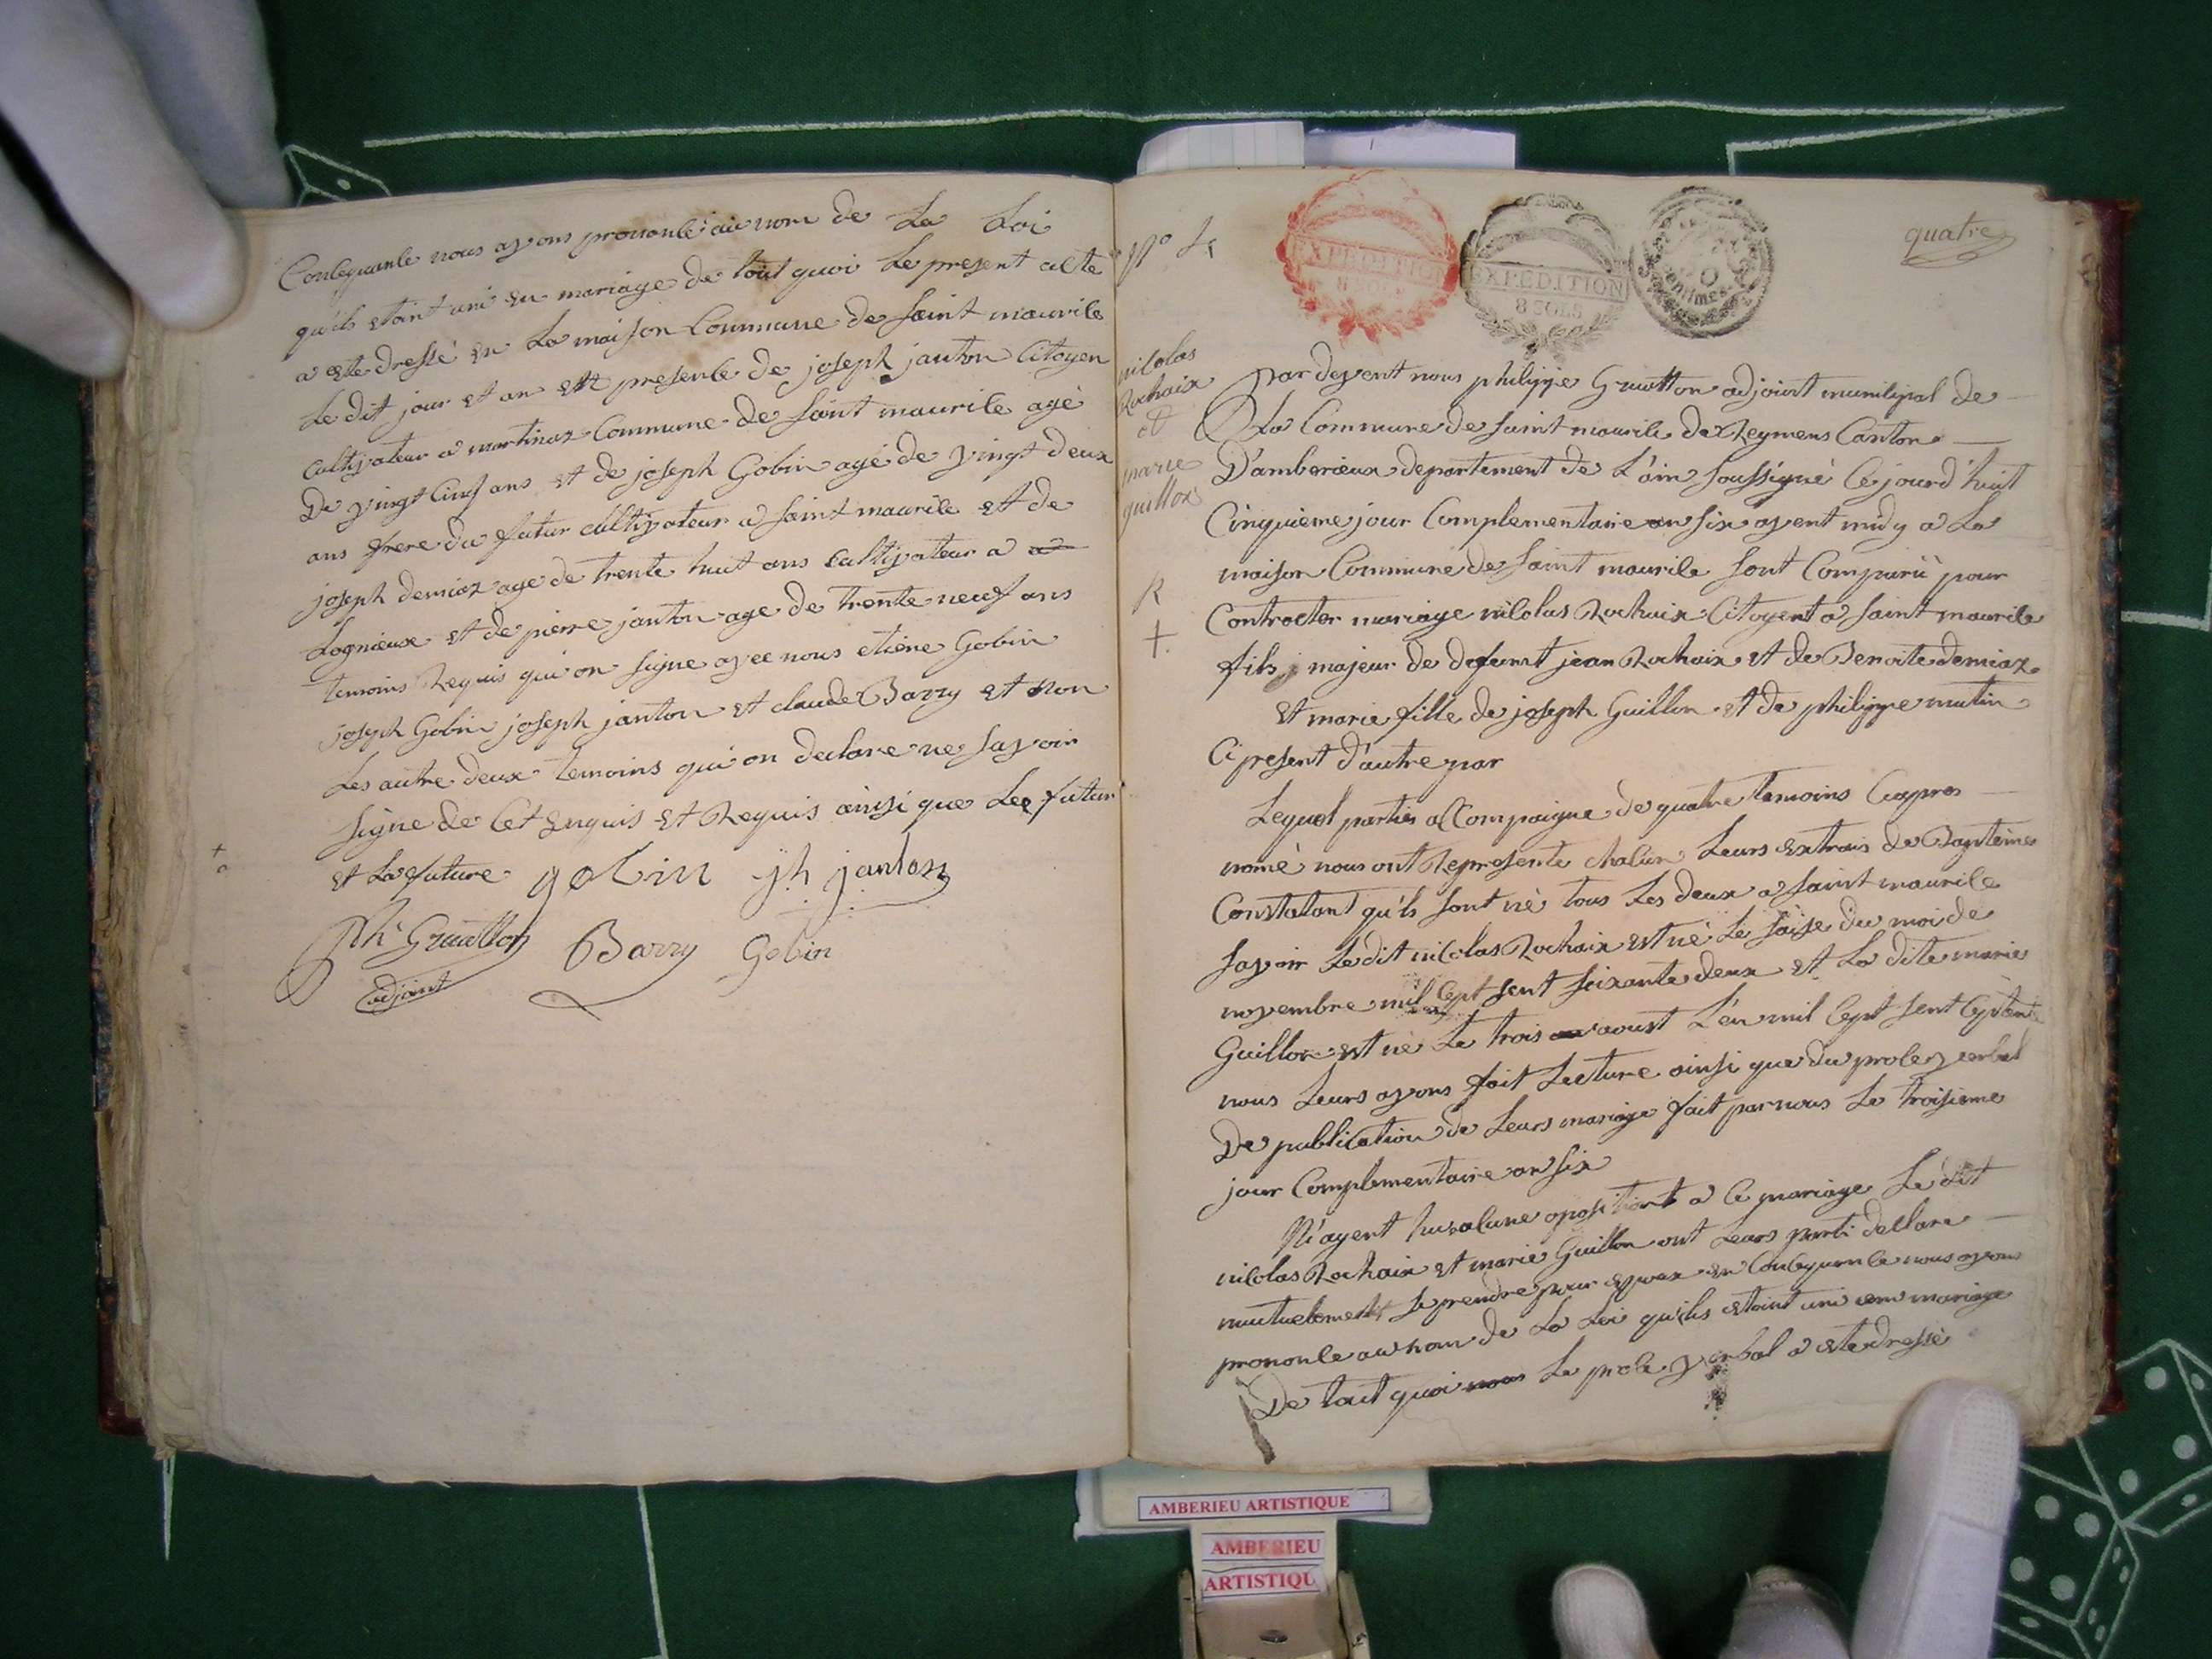 Consequance nous avons prononcé au nom de La Loi
qu'ils etoint uni en mariage de tout quoi Le present acte
a ete dressé en La maison Commune de saint maurice
Le dit jour et an en presence de joseph janton Citoyen
Cultivateur a martinaz Commune de saint maurice agé
De vingt Cinq ans et de joseph Gobin agé de vingt deux
ans frere du futur cultivateur a saint maurice et de
joseph demiaz age de trente huit ans cultivateur a
Lognieux et de pierre janton age de trente neuf ans
temoins Requis qui on signe avec nous etiene Gobin
joseph Gobin joseph janton et claude Barry et non
Les autre deux temoins qui on declare ne savoir
signe de Cet enquis et Requis ainsi que Lee futur
et La future gobin jh janton
Ph. Gruatton Barry Gobin
adjoint
N° 4
quatre
EXPEDITION
8 SOLS
EXPEDITION
8 SOLS
Centimes
nicolas
Rochaix
et
marie
guillon
R
+
par devent nous philippe Gruatton adjoint municipal de
La Commune de saint maurice de Reymens Canton
D'amberieux departement de L'ain soussigné Cejourd'huit
Cinquieme jour Complementaire an six avent midy a La
maison Commune de saint maurice sont Comparü pour
Contracter mariage nicolas Rochaix Citoyent a saint maurice
fils majeur de defunt jean Rochaix et de Benoite demiaz
et marie fille de joseph Guillon et de philippe mutin
Ci present d'autre par
Lequel parties acCompaigne de quatre temoins Ciapres
nomé nous ont Represente chacun Leurs extrais de Bapteme
Constatant qu'ils sont né tous Les deux a saint maurice
savoir Le dit nicolas Rochaix est né Le saise du moi de
novembre mil cept sent soixante deux et La dite marie
Guillon est né Le trois aoust L'en mil cept sent ceptente
nous Leurs avons fait Lecture ainsi que du proces verbal
De publication de Leurs mariage fait par nous Le troisieme
jour Complementaire an six
N'ayent hu aucune opositiont a Ce mariage Le dit
nicolas Rochaix et marie Guillon ont Leurs parti declare
mutuelement se prendre pour epoux en Consequence nous avons
prononce au nom de La Loi qu'ils etoint uni en mariage
De tout quoi nous Le proce verbal a ete dressé
AMBERIEU ARTISTIQUE
AMBERIEU
ARTISTIQU